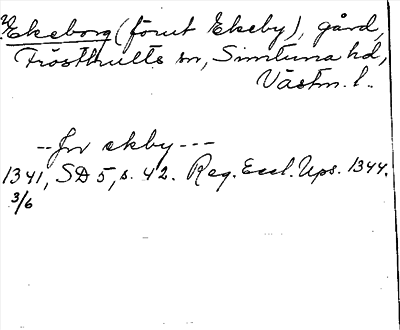 Ekeborg (förut Ekeby), gård,
Frösthults sn, Simtuna hd,
Västm. l.
-- Jn ekby ---
1341, SD 5, s. 42. Reg. Eccl. Ups. 1344.
3/6